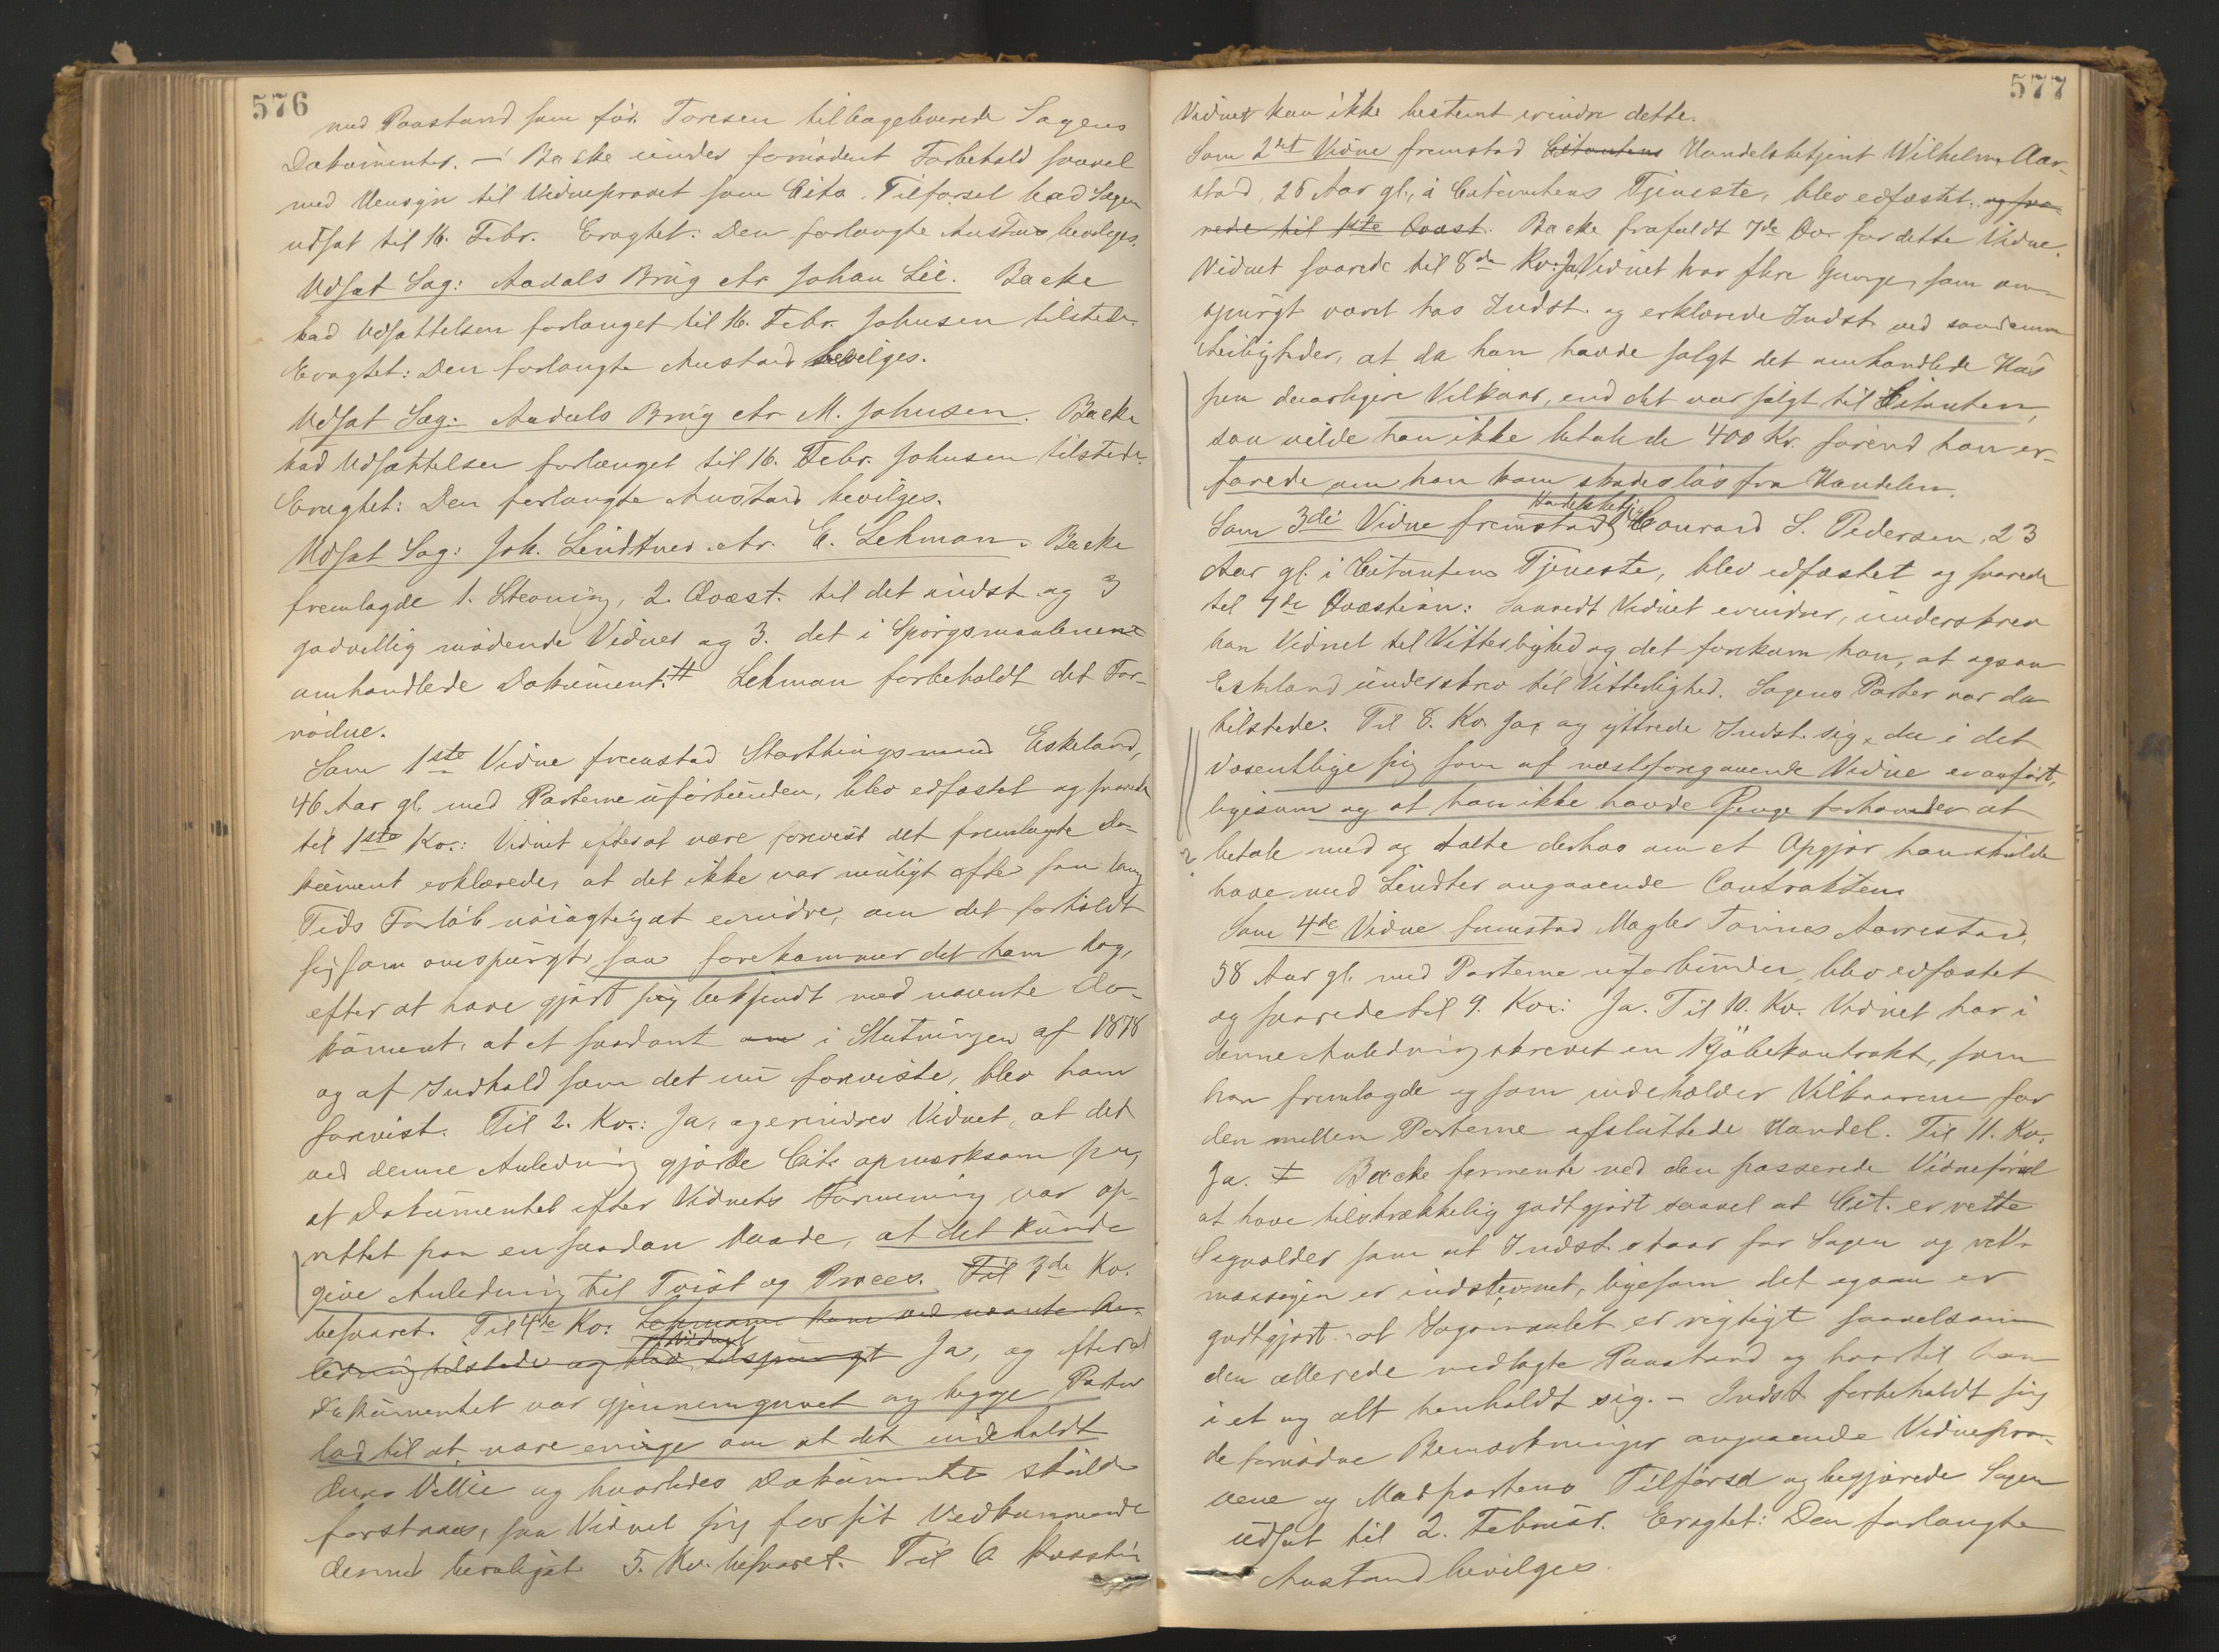 576
med Paastand som før. Toresen tilbageleverede Sagens
Dokumenter. – Backe under fornødent Forbehold saavel
med Hensyn til Vidneprovet som Cita. Tilførsel bad Sagen
udsat til 16. Febr. Eragtet: Den forlangte Anstand bevilges.
Udsat Sag: Aadals Brug ctr Johan Lie. Backe
bad Udsættelsen forlænget til 16. Febr. Johnsen tilstede.
Eragtet: Den forlangte Anstand bevilges.
Udsat Sag: Aadals Brug ctr M. Johnsen. Backe
bad Udsættelsen forlænget til 16. Febr. Johnsen tilstede.
Eragtet: Den forlangte Anstand bevilges.
Udsat Sag: Joh. Lindtner ctr. E. Lehman. Backe
fremlagde 1. Stevning, 2. Qvæst. til det indst. og 3
godvillig mødende Vidner og 3. det i Spørgsmaalene
omhandlede Dokument. # Lehman forbeholdt det For-
nødne.
Som 1ste Vidne fremstod Storthingsmand Eskeland,
46 Aar gl. med Parterne uforbunden, blev edfæstet og svarede
til 1ste Kv.: Vidnet efter at være forevist det fremlagte Do-
kument erklærede, at det ikke var muligt efter saa lang
Tids Forløb nøiagtig at erindre, om det forholdt
sig som omspurgt, saa forekommer det ham dog,
efter at have gjort sig bekjendt med nævnte Do-
kument, at et saadant om i Slutningen af 1878
og af Indhold som det nu foreviste, blev ham
forevist. Til 2. Kv.: Ja, og erindrer Vidnet, at det
ved denne Anledning gjorde Cit. opmærksom paa,
at Dokumentet efter Vidnets Formening var op-
rettet paa en saadan Maade, at det kunde
give Anledning til Tvist og Proces. Til 3de Kv.
besvaret. Til 4de Kv: Lehmann kom ved nævnte An-
ledning tilstede og blev tilspurgt af Vidnet Ja, og efter at
Dokumentet var gjennemgaaet og begge Parter
lod til at være enige om at det indeholdt
deres Villie og hvorledes Dokumentet skulde
forstaaes, saa Vidnet sig for sit Vedkommende
dermed beroliget 5. Kv. besvaret. Til 6 Kvæstion
577
Vidnet kan ikke bestemt erindre dette.
Som 2det Vidne fremstod Citantens Handelsbetjent Wilhelm Aar-
stad, 26 Aar gl., i Citantens Tjeneste, blev edfæstet. og sva-
rede til 1ste Qvæst. Backe frafaldt 7de Qv. for dette Vidne.
Vidnet svarede til 8de Kv: Ja, Vidnet har flere Gange, som om-
spurgt været hos Indst. og erklærede Indst. ved saadanne
Leiligheder, at da han havde solgt det omhandlede Hus
paa daarligere Vilkaar, end det var solgt til Citanten,
saa vilde han ikke betale de 400 Kr. førend han er-
farede om han kom skadesløs fra Handelen.
Som 3die Vidne fremstod Handelsbetj. Conrad S. Pedersen, 23
Aar gl. i Citantens Tjeneste, blev edfæstet og svarede
til 7de Qvæstion: Saavidt Vidnet erindrer, underskrev
han Vidnet til Vitterlighed og det forekom ham, at ogsaa
Eskeland underskrev til Vitterlighed. Sagens Parter var da
tilstede. Til 8. Kv. Ja, og yttrede Indst. sig da i det
Væsentlige sig som af næstforegaaende Vidne er anført,
ligesom og at han ikke havde Penge forhaanden at
betale med og talte derhos om et Opgjør han skulde
have med Lindtner angaaende Contrakten.
Som 4de Vidne fremstod Mægler Tønnes Aarrestad,
58 Aar gl. med Parterne uforbunden, blev edfæstet
og svarede til 9. Kv.: Ja. Til 10. Kv. Vidnet har i
denne Anledning skrevet en Kjøbekontrakt, som
han fremlagde og som indeholder Vilkaarene for
den mellem Parterne afsluttede Handel. Til 11. Kv.
Ja. ‡ Backe formente ved den passerede Vidneførsel
at have tilstrækkelig godtgjort saavel at Cit. er rette
Sagvolder som at Indst. staar for Sagen og rett-
mæssigen er indstevnet, ligesom det ogsaa er
godtgjort at Søgsmaalet er rigtigt saavelsom
den allerede nedlagte Paastand og hvortil han
i et og alt henholdt sig. – Indst forbeholdt sig
de fornødne Bemærkninger angaaende Vidnepro-
vene og Modpartens Tilførsel og begjærede Sagen
udsat til 2. Februar. Eragtet: Den forlangte
Anstand bevilges.